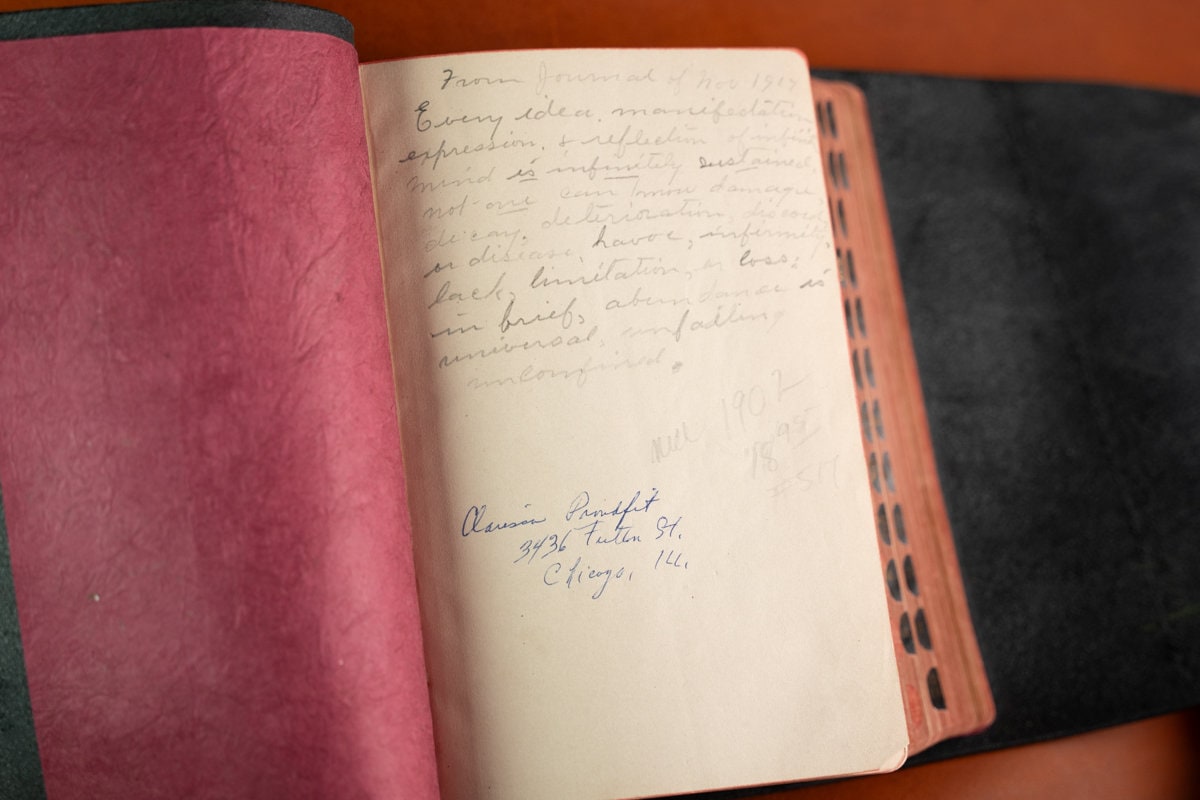 From Journal of Nov 1917
Every idea, manifestation
expression, & reflection of infinite
mind is infinitely sustained,
not one can know damage
decay, deterioration, discord,
or disease, havoc, infirmity,
lack, limitation, or loss;
in brief, abundance is
universal, unfailing
unconfined.
1902
1895
Clarissa Proudfit
3436 Fulton St.
Chicago, Ill.